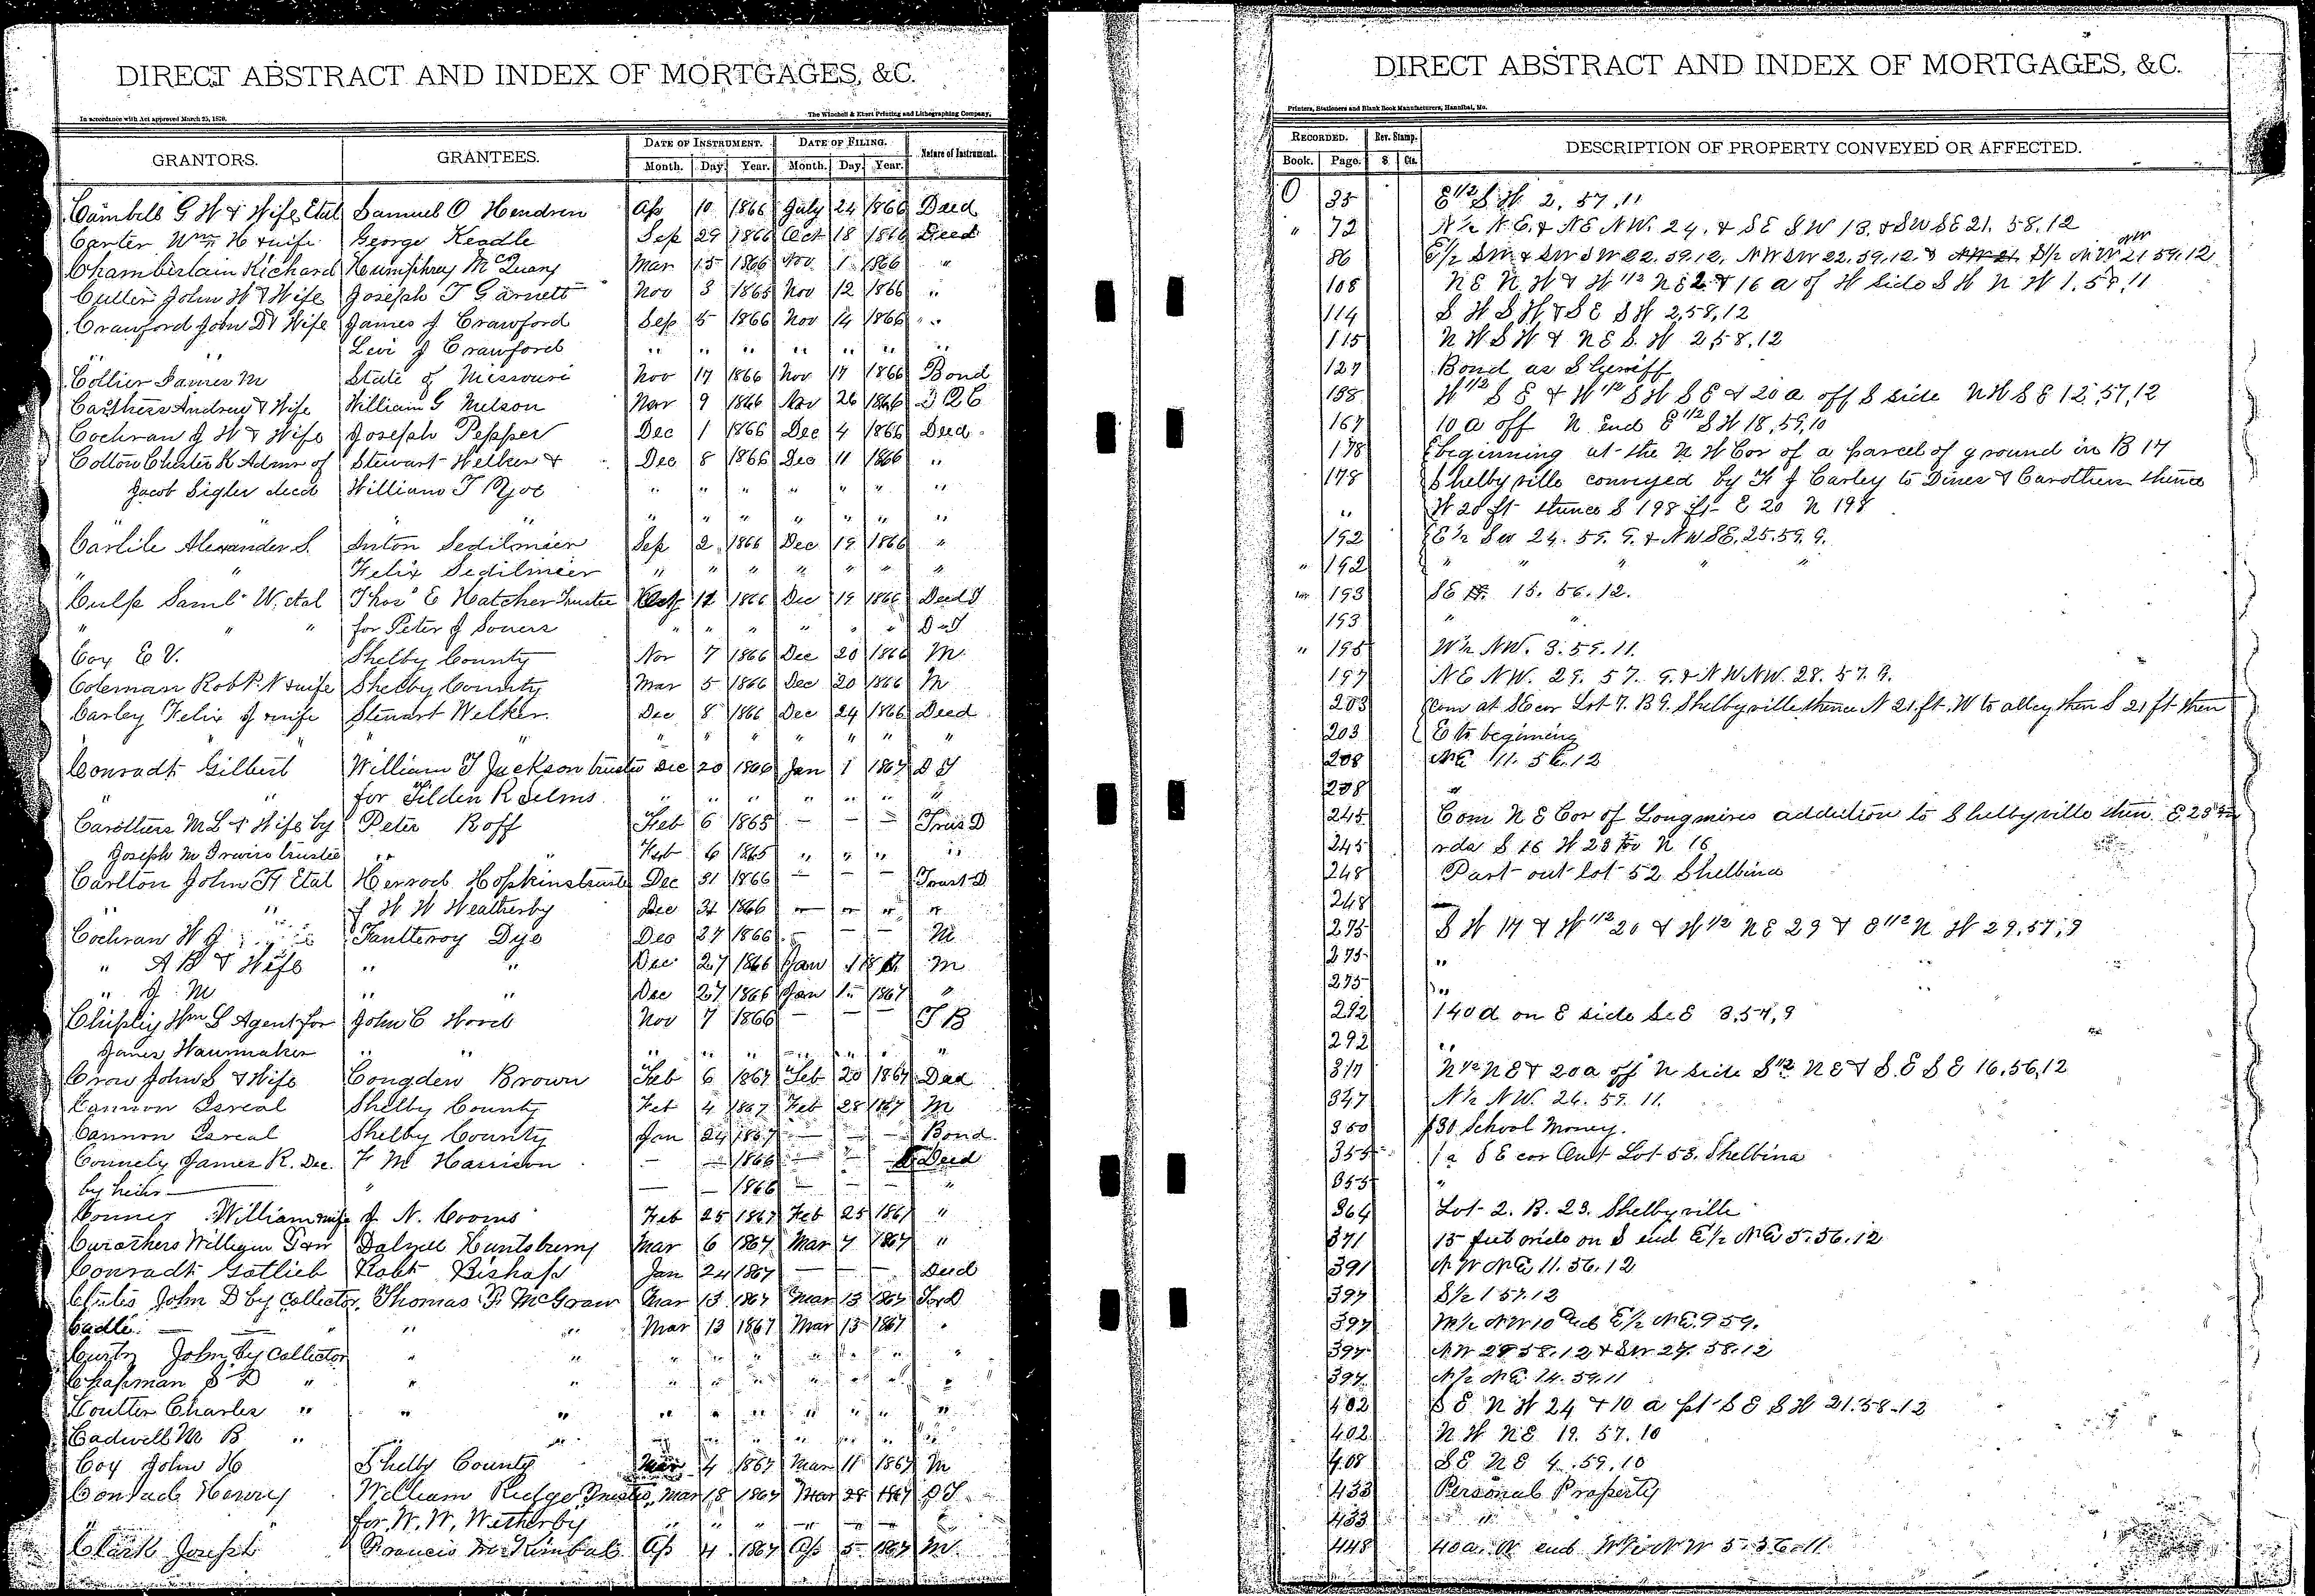 DIRECT ABSTRACT AND INDEX OF MORTGAGES, &C.
In accordance with Act approved March 25, 1870.
The Winchell & Ebert Printing and Lithographing Company,
GRANTORS. GRANTEES. DATE OF INSTRUMENT. DATE OF FILING. Nature of Instrument.
Month. Day. Year. Month. Day. Year.
Cambell G W & Wife Etal Samuel O Hendren Ap 10 1866 July 24 1866 Deed
Carter Wm H & wife George Keadle Sep 29 1866 Oct 18 1866 Deed
Chamberlain Richard Humphrey McQuary Mar 15 1866 Nov 1 1866 "
Cullen John W & Wife Joseph T Garnett Nov 3 1865 Nov 12 1866 "
Crawford John D & Wife James J Crawford Sep 5 1866 Nov 14 1866 "
Levi J Crawford " " " " " " "
Collier James M State of Missouri Nov 17 1866 Nov 17 1866 Bond
Carthers Andrew & Wife William G Nelson Nov 9 1866 Nov 26 1866 2 Q C
Cochran J W & Wife Joseph Pepper Dec 1 1866 Dec 4 1866 Deed
Cotton Chester K Admr of Stewart Welker & Dec 8 1866 Dec 11 1866 "
Jacob Sigler decd William T " " " " " " "
" " " " " " " " "
Carlile Alexander S. Anton Sedilmeier Sep 2 1866 Dec 19 1866 "
" " Felix Sedilmeier " " " " " " "
Culp Saml W. etal Thos E Hatcher Trustee Oct 12 1866 Dec 19 1866 Deed T
" " " for Peter J Sowers " " " " " " D of T
Cox E V. Shelby County Nov 7 1866 Dec 20 1866 M
Coleman Robt. N & wife Shelby County Mar 5 1866 Dec 20 1866 M
Carley Felix J & wife Stewart Welker Dec 8 1866 Dec 24 1866 Deed
" " " " " " " " "
Conradt Gilbert William T Jackson trustee Dec 20 1866 Jan 1 1867 D T
" " for Tilden R Selms " " " " " " "
Carothers M L & Wife by Peter Roff Feb 6 1865 — — — Trus D
Joseph M Irwin trustee " " Feb 6 1865 " " " "
Carlton John H Etal Herrod Hopkins trustee Dec 31 1866 — — — Trust D
" f W W Weatherby Dec 31 1866 " " " "
Cochran W G Fauntleroy Dye Dec 27 1866 — — — M
" A B & Wife " " Dec 27 1866 Jan 1 1867 M
" J M " " Dec 27 1866 Jan 1 1867 "
Chipley Wm S Agent for John C Wood Nov 7 1866 — — — T B
James Wanmaker " " " " " " " " "
Crow John S & Wife Congden Brown Feb 6 1867 Feb 20 1867 Deed
Cannon Isreal Shelby County Feb 4 1867 Feb 28 1867 M
Cannon Isreal Shelby County Jan 24 1867 — — — Bond
Connely James R. Dec. F M Harrison — — 1866 — — — Deed
by heirs — " — — 1866 — — — "
Conner William & wife J. N. Cooms Feb 25 1867 Feb 25 1867 "
Curathers William Dalzell Huntsberry Mar 6 1867 Mar 7 1867 "
Conradt Gotlieb Robt Bishop Jan 24 1867 — — — Deed
John D by Collector Thomas P. McGraw Mar 13 1867 Mar 13 1867
Cadle — " " Mar 13 1867 Mar 13 1867 "
John by Collector " " " " " " " " "
Chapman S D " " " " " " " " " "
Coulter Charles " " " " " " " " " "
Cadwell M B " " " " " " " " "
Coy John H Shelby County Mar 4 1867 Mar 11 1867 M
Conrad Henry William Ridge Trustee Mar 18 1867 Mar 28 1867 D T
for W. W. Wetherby " " " — — —
Clark Joseph Francis M Kimbal Ap 4 1867 Ap 5 1867 M.
DIRECT ABSTRACT AND INDEX OF MORTGAGES, &C.
Printers, Stationers and Blank Book Manufacturers, Hannibal, Mo.
RECORDED. Rev. Stamp. DESCRIPTION OF PROPERTY CONVEYED OR AFFECTED.
Book. Page. $ Cts.
O 35 E 1/2 S W 2, 57, 11
" 72 N 1/2 N E. & NE NW. 24. & SE SW 13. & SW SE 21. 58. 12
86 E 1/2 SW & SW SW 22. 59. 12, NW SW 22. 59. 12 & S 1/2 NW 21 59. 12
108 N E N W & W 1/2 N E 2 & 16 a of W side S W N W 1. 58, 11
114 S W S W & S E S W 2, 58, 12
115 N W S W & N E S. W 2, 58, 12
127 Bond as Sheriff
158 W 1/2 S E & W 1/2 S W S E & 20 a off S side N W S E 12, 57, 12
167 10 a off N End E 1/2 S W 18, 59, 10
178 beginning at the N W Cor of a parcel of ground in B 17
178 Shelbyville conveyed by F J Carley to Dines & Carothers thence
" W 20 ft thence S 198 ft E 20 N 198
192 E 1/2 SW 24. 59. 9. & NW SE. 25. 59. 9.
" 192 " " " " "
" 193 SE 15. 56. 12.
193 " "
" 195 W 1/2 NW. 3. 59. 11.
197 NE NW. 29. 57. 9. & NW NW. 28. 57. 9.
203 Com at SE cor Lot 7. B 9. Shelbyville thence N 21 ft. W to alley then S 21 ft then
203 E to begining
208 NE 11. 56. 12
208 "
245 Com N E Cor of Longmires addition to Shelbyville then E 23
245 rds S 16 W 23 N 16
248 Part out lot 52 Shelbina
248 —
275 S W 17 & W 1/2 20 & W 1/2 N E 29 & E 1/2 N W 29, 57, 9
275 "
275 "
292 140 a on E side S E 3, 57, 9
292 "
317 N 1/2 N E & 20 a off N side S 1/2 N E & S. E S E 16, 56, 12
347 N 1/2 NW. 26. 59. 11.
350 $30 School Money.
355 1 a S E cor Out Lot 53. Shelbina
355 "
364 Lot 2. B. 23. Shelbyville
371 15 feet wide on S end E 1/2 NE 5. 56. 12
391 NW NE 11. 56. 12
397 S 1/2 1 57. 12
397 W 1/2 NW 10 and E 1/2 NE. 9 59.
397 NW 28 58. 12 & SW 27. 58. 12
397 N 1/2 NE 14. 59. 11
402 S E N W 24 & 10 a pt S E S W 21. 58. 12
402 N W N E 19. 57. 10
408 S E N E 4. 59, 10
433 Personal Property
433 "
448 40 a. N end W 1/2 NW 5. 56. 11.